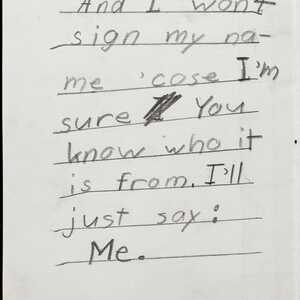 And I wont
sign my na-
me 'cose I'm
sure You
know who it
is from. I'll
just say:
Me.